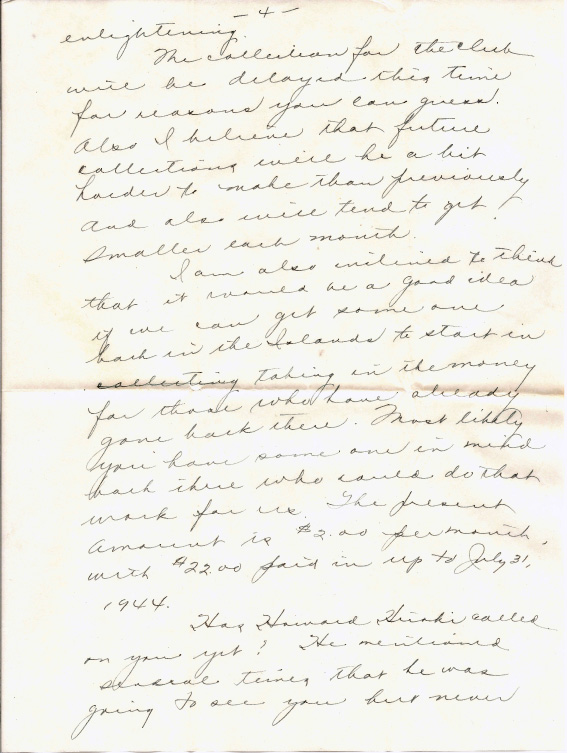 - 4 -
enlightening.
The collection for the club
will be delayed this time
for reasons you can guess.
Also I believe that future
collections will be a bit
harder to make than previously
and also will tend to get
smaller each month.
I am also inclined to think
that it would be a good idea
if we can get some one
back in the Islands to start in
collecting taking in the money
for those who have already
gone back there. Most likely
you have some one in mind
back there who could do that
work for us. The present
amount is $2.00 per month,
with $22.00 paid in up to July 31,
1944.
Has Howard Hiroki called
on you yet? He mentioned
several times that he was
going to see you but never